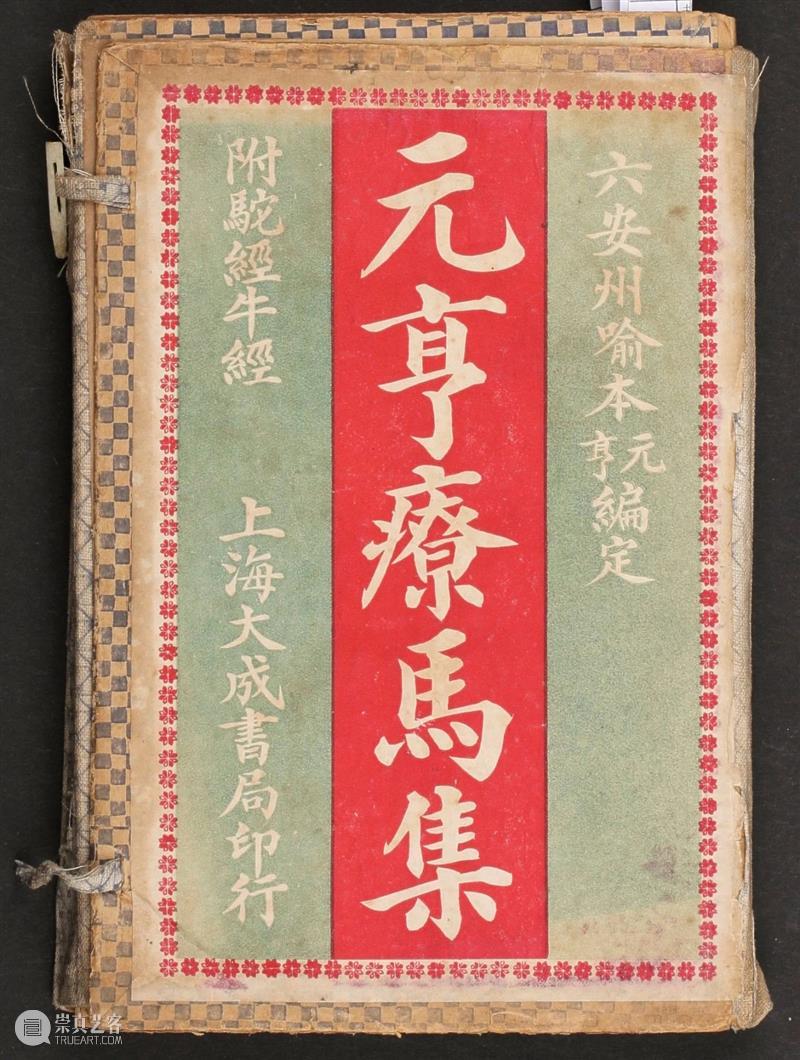 六安州喻本元亨編定
元亨療馬集
附駝經牛經
上海大成書局印行
崇真艺客
TRUEART.COM